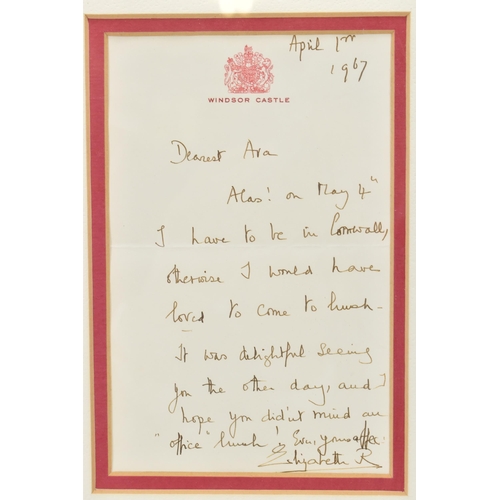 April 1st
1967
WINDSOR CASTLE
Dearest Ava
Alas! on May 4th
I have to be in Cornwall,
otherwise I would have
loved to come to lunch -
It was delightful seeing
you the other day, and I
hope you didn't mind an
"office lunch"! Ever, yours affec:
Elizabeth R